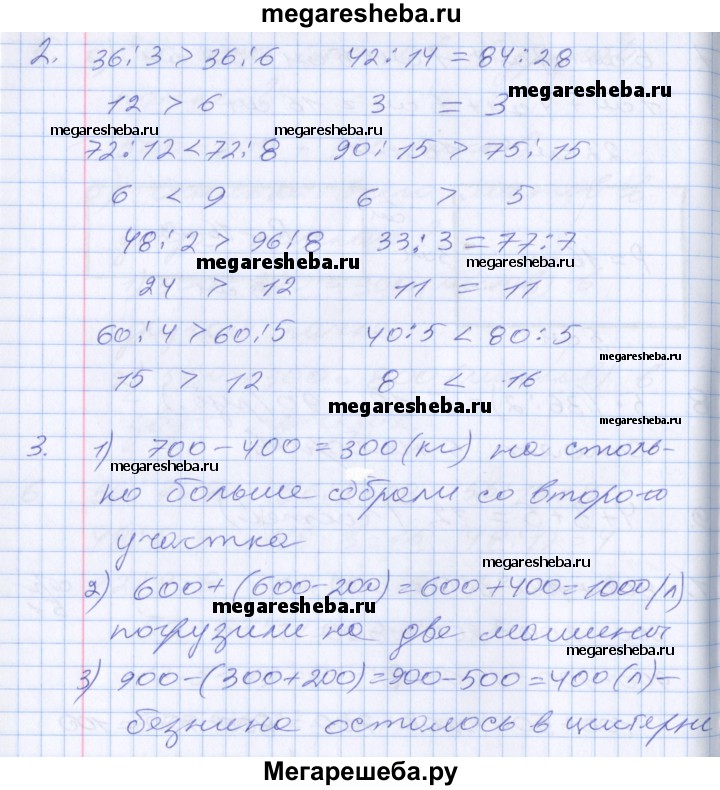 megaresheba.ru
2. 36:3 > 36:6 42:14 = 84:28
megaresheba.ru
megaresheba.ru
12 > 6 3 = 3
megaresheba.ru megaresheba.ru
72:12 < 72:8 90:15 > 75:15
6 < 9 6 > 5
48:2 > 96:8 33:3 = 77:7
megaresheba.ru megaresheba.ru
24 > 12 11 = 11
60:4 > 60:5 40:5 < 80:5
megaresheba.ru
15 > 12 8 < 16
megaresheba.ru
3. 1) 700-400=300(кг) на столь-
megaresheba.ru
ко больше собрали со второго
участка
megaresheba.ru
2) 600+(600-200)=600+400=1000(л)
megaresheba.ru
погрузили на две машины
megaresheba.ru
3) 900-(300+200)=900-500=400(л)-
безнина осталось в цистерни
megaresheba.ru
Мегарешеба.ру